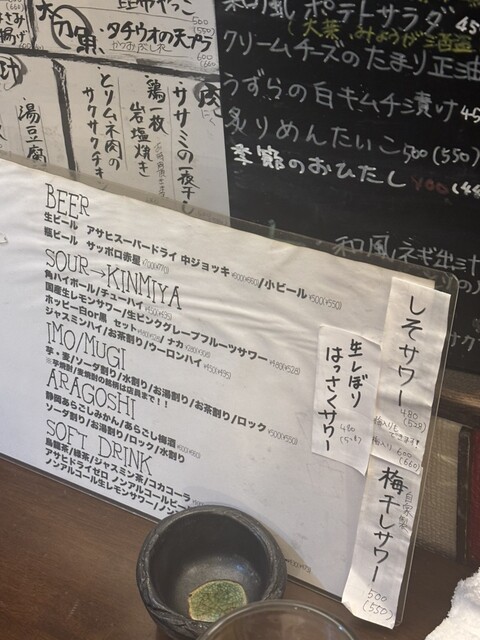 昆布やっこ
500
(550)
大刀魚
タチウオの天ぷら
かつおぶしマヨ
600
(660)
揚げ
湯豆腐
とりムネ肉の
サクサクチキン
鶏一枚
岩塩焼き
ササミの一夜干し
肉
にく
和風ポテトサラダ
(大葉、みょうが
クリームチーズのたまり正油
うずらの白キムチ漬け
炙りめんたいこ 500 (550)
季節のおひたし
BEER
生ビール アサヒスーパードライ 中ジョッキ ¥600(660)/小ビール ¥500(550)
瓶ビール サッポロ赤星 ¥700(770)
SOUR→KINMIYA
角ハイボール/チューハイ
国産生レモンサワー/生ピンクグレープフルーツサワー ¥480(528)
ホッピー白or黒 セット ナカ
ジャスミンハイ/お茶割り/ウーロンハイ
IMO/MUGI
芋・麦/ソーダ割り/水割り/お湯割り/お茶割り/ロック ¥500(550)
※芋焼酎/麦焼酎の銘柄は店員まで!!
ARAGOSHI
静岡あらごしみかん/あらごし梅酒
ソーダ割り/お湯割り/ロック/水割り
SOFT DRINK
烏龍茶/緑茶/ジャスミン茶/コカコーラ
アサヒドライゼロ ノンアルコールビール
ノンアルコール生レモンサワー/ノン
生しぼり
はっさくサワー
480
(528)
しそサワー
480
(528)
梅入りもできます
梅入り 600
(660)
自家製
梅干しサワー
500
(550)
和風ネギ出汁